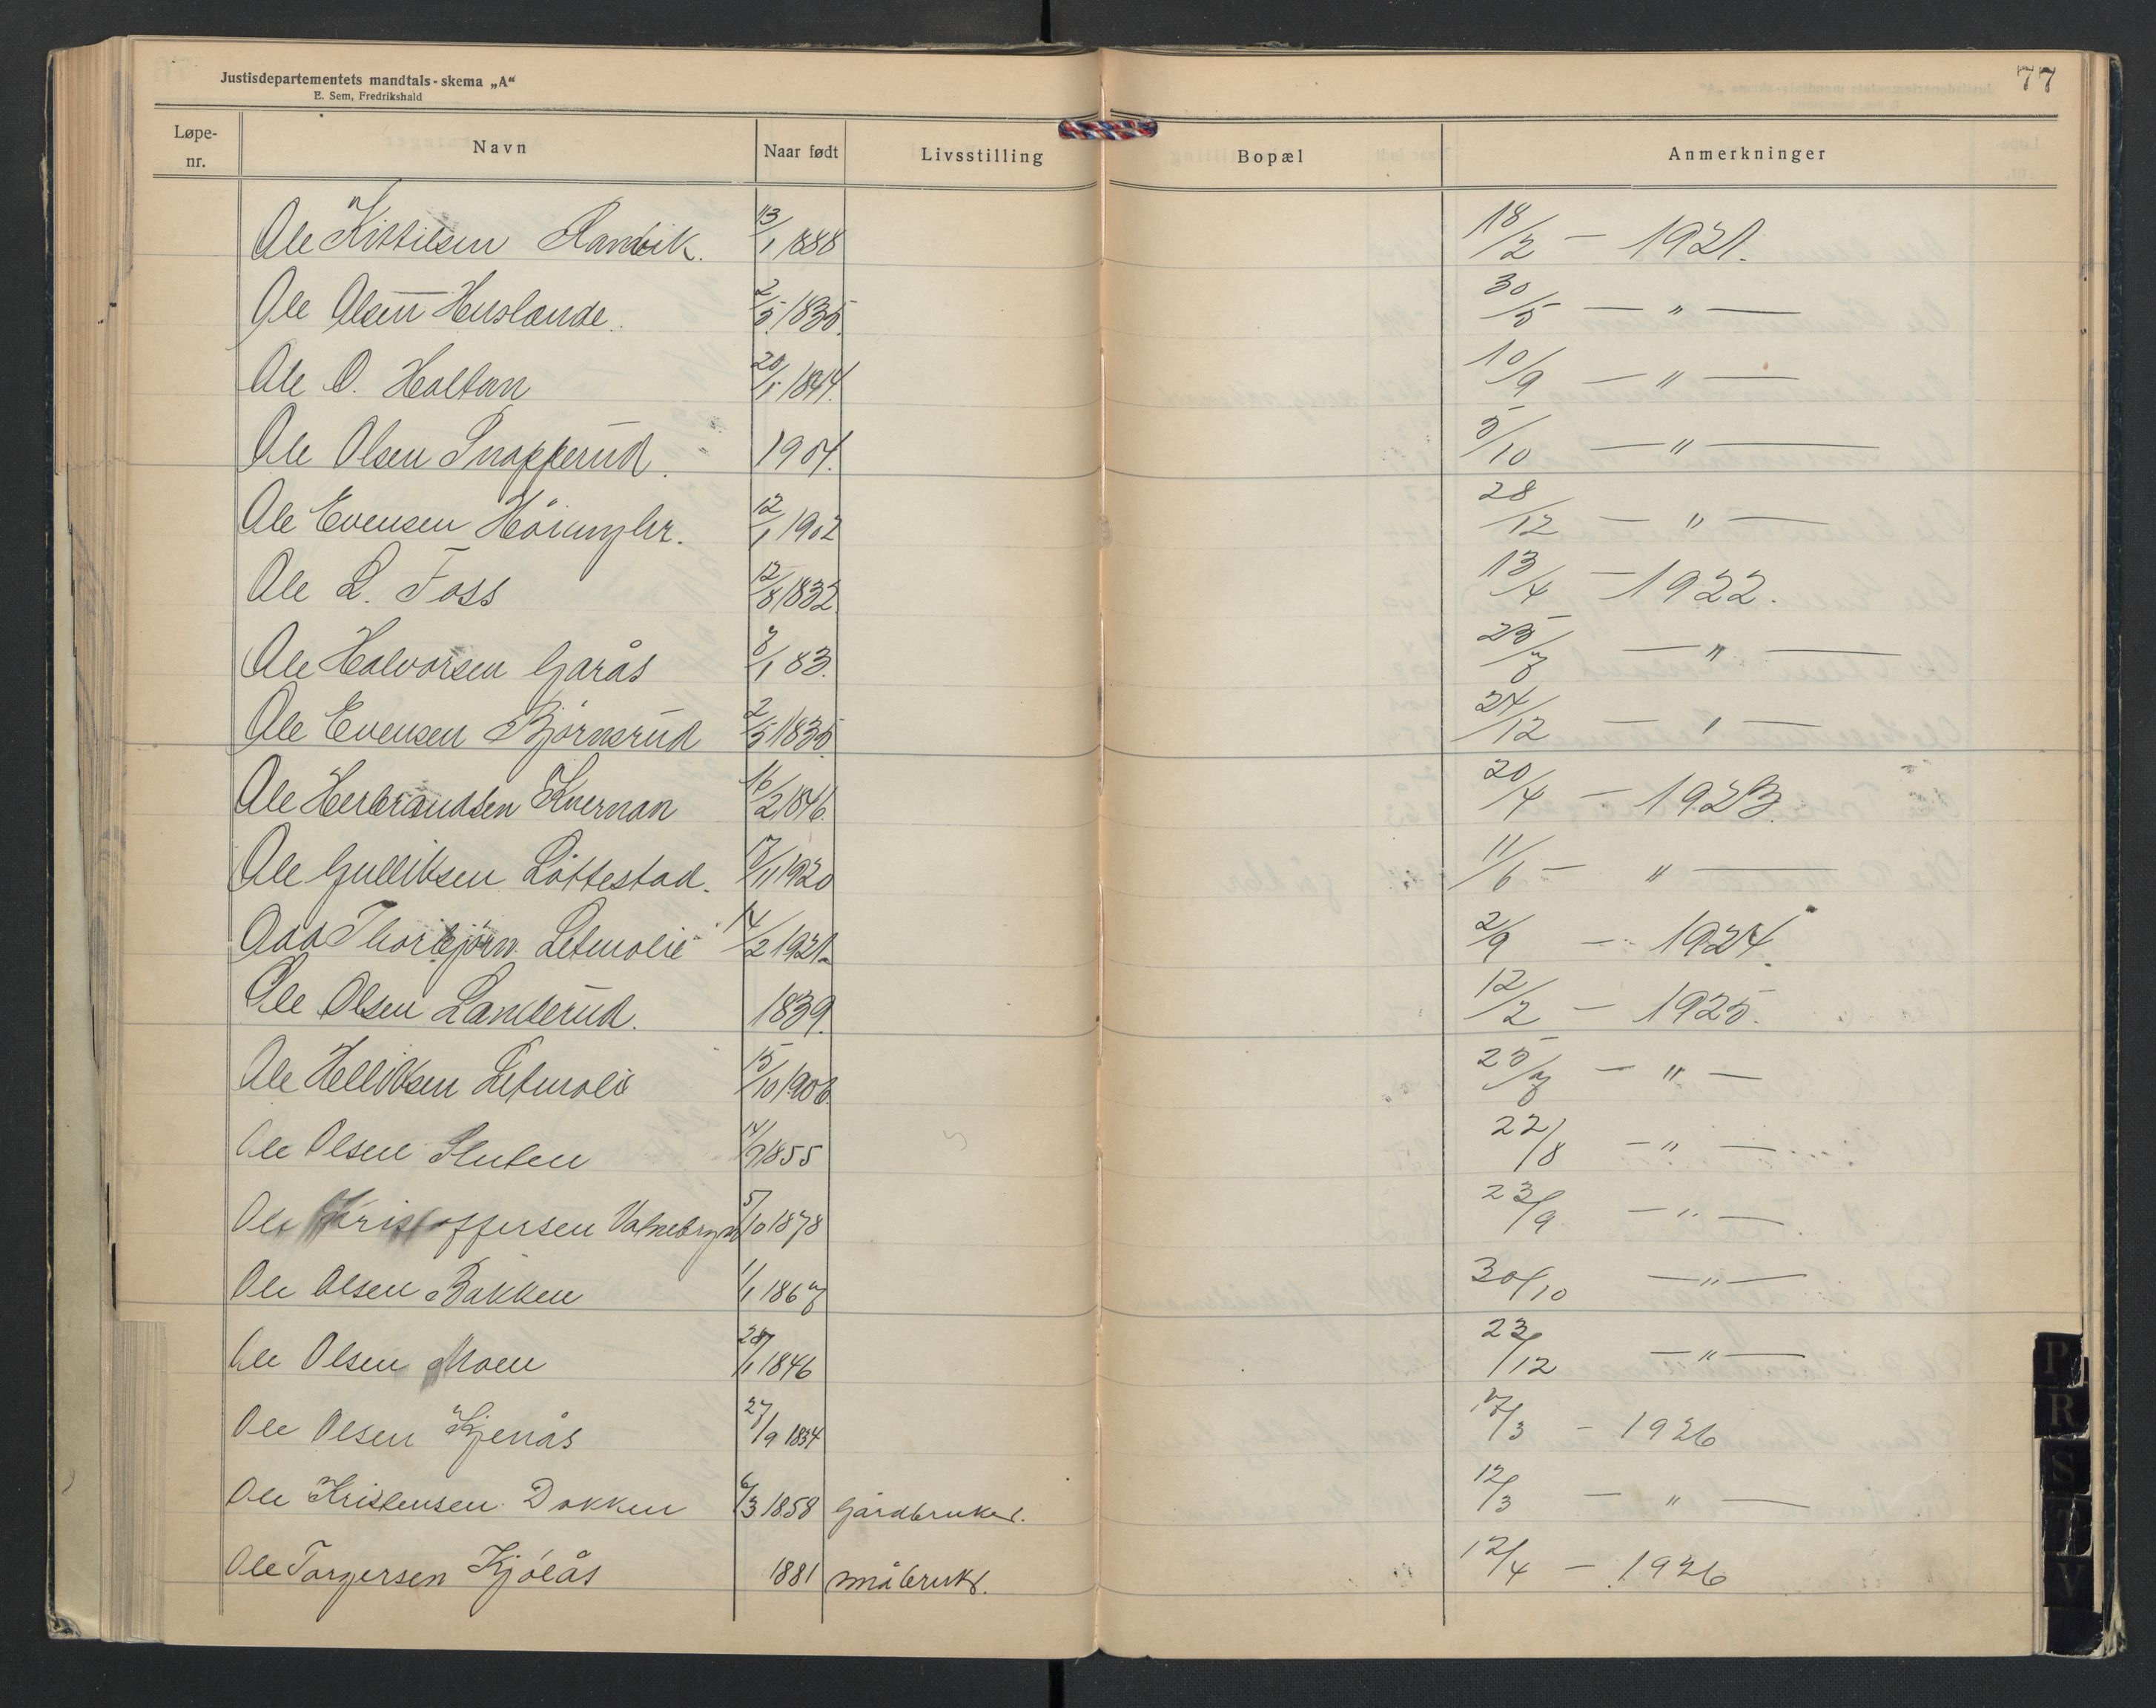 77
Justisdepartementets mandtals-skema „A“
E. Sem, Fredrikshald
Løpe-nr. Navn Naar født Livsstilling Bopæl Anmerkninger
Ole Kittilsen 13/1 1888 18/2 — 1921.
Ole Olsen Huslende. 2/5 1835. 30/5 — " —
Ole O. Holtan 20/5 1844. 10/9 — " —
Ole Olsen Snapperud. 1904. 5/10 — " —
Ole Evensen 12/1 1902 28/12 — " —
Ole L. Foss 12/8 1832 13/4 — 1922.
Ole Halvorsen Garås 7/1 83. 25/7 — " —
Ole Evensen Bjørnsrud 2/5 1835. 24/12 — " —
Ole Herbrandsen Kvernan 16/2 1846. 20/4 — 1923.
Ole Gulliksen Låttestad. 17/11 1920 11/6 — " —
Odd Thorbjørn Letmolie 14/2 1921. 2/9 — 1924.
Ole Olsen Landerud. 1839. 12/2 — 1925.
Ole Helliksen Letmolie 15/10 1906. 25/7 — " —
Ole Olsen Sluten 14/9 1855 22/8 — " —
Ole Kristoffersen 5/10 1878 23/9 — " —
Ole Olsen Bakken 1/1 1867 30/10 — " —
Ole Olsen Moen 28/1 1846 23/12 — " —
Ole Olsen Kjenås 27/9 1834 17/3 — 1926
Ole Kristensen Dokken 6/3 1858 Gårdbruker. 12/3 — " —
Ole Torgersen Kjølås 1881 småbruk. 12/4 — 1926
P
R
S
T
V